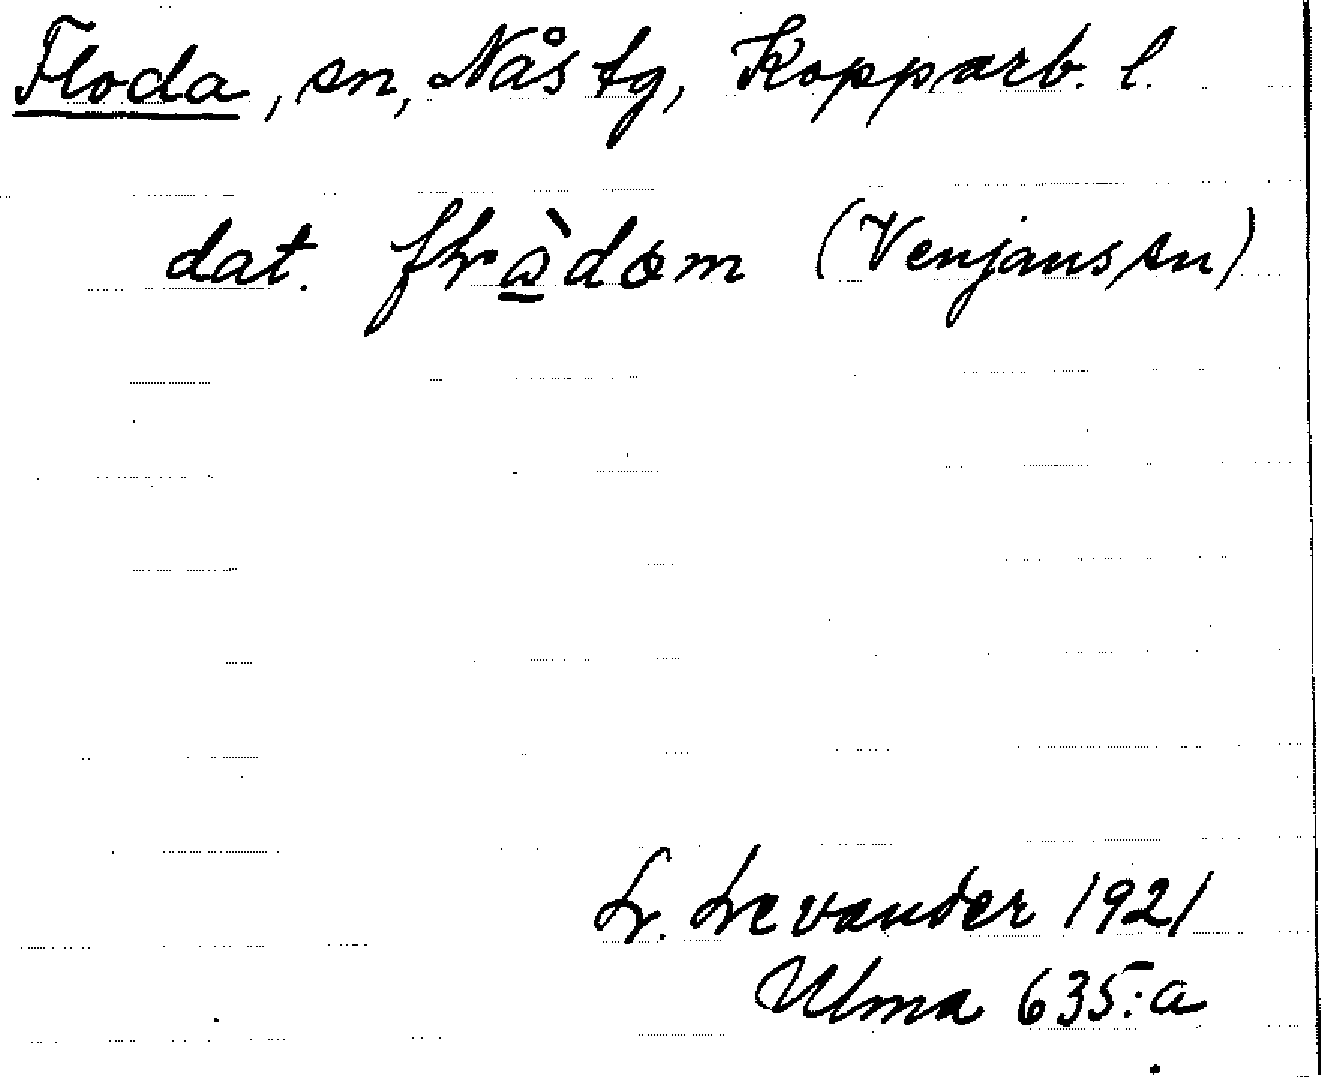 Floda, sn, Nås tg, Kopparb. l.
dat. (Venjans sn)
L. Levander 1921
Ulma 635:a